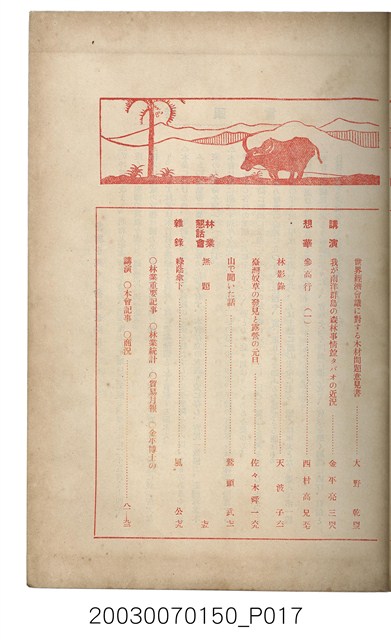 世界經濟會議に對する木材問題意見書…………大野 乾
講演 我が南洋群島の森林事情飽きパオの近況……金平亮三
想華 參高行 (一)…………西村高兄
林影錄…………天渡子
臺灣奴草の發見と露營の元日…………佐々木舜一
山で聞いた話…………鷲頭武
林業懇話會 無題
雜錄 綠蔭傘下…………風公
〇林業重要記事 〇林業統計 〇貿易月報 〇金平博士の
講演 〇本會記事 〇商況
20030070150_P017